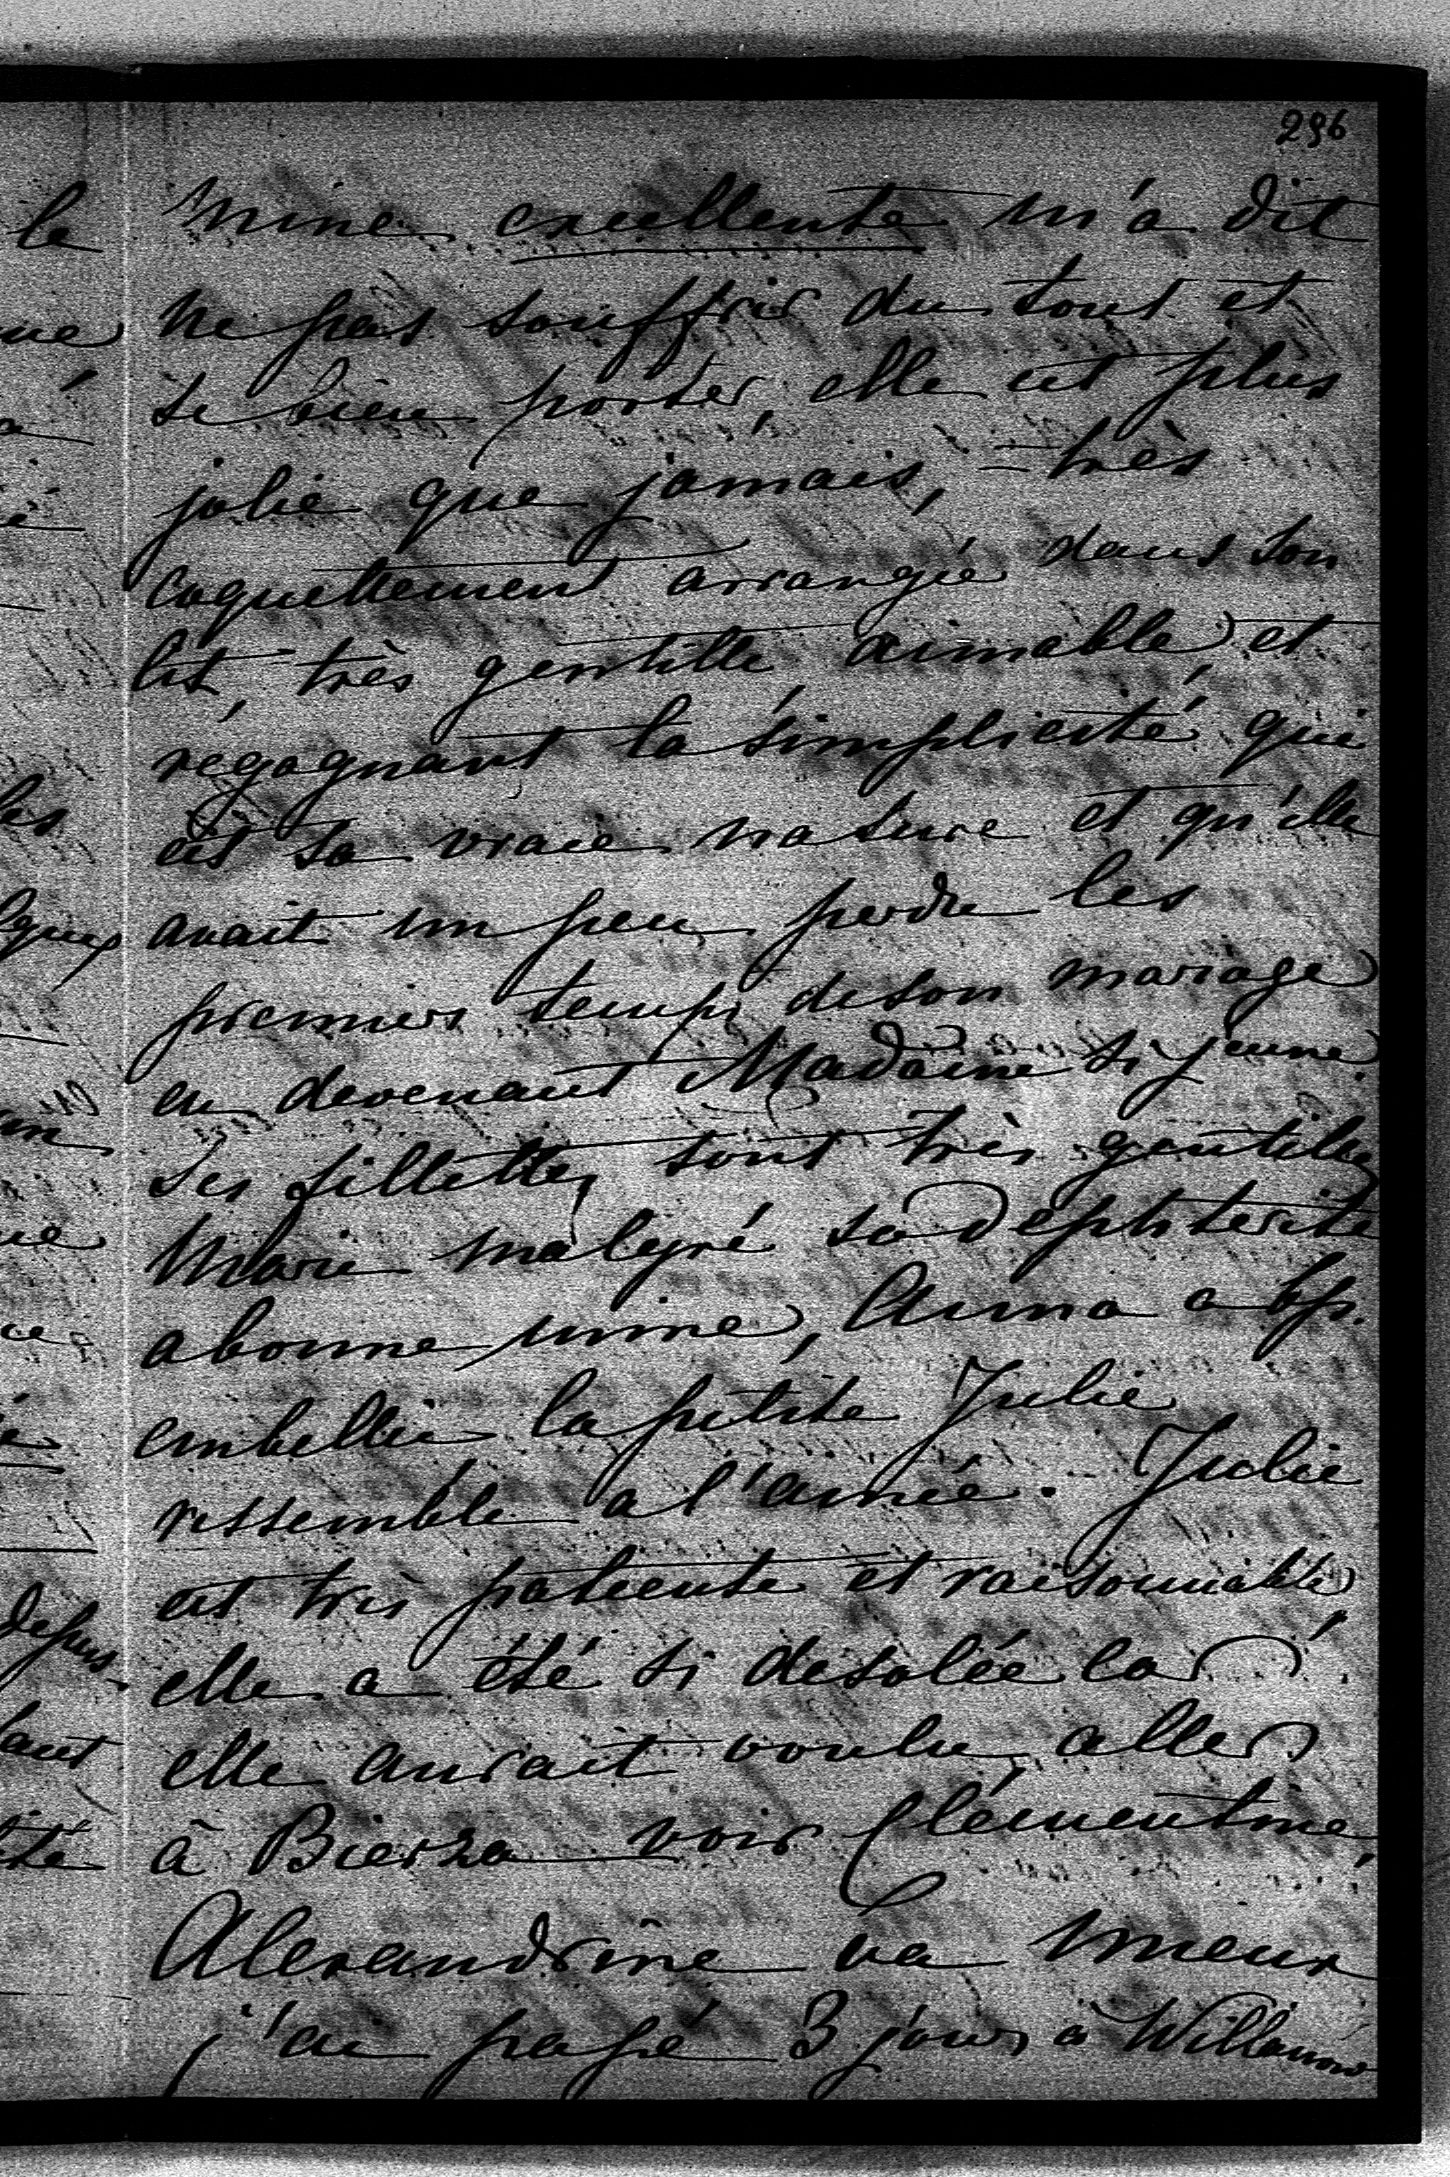 296
mine excellente m'a dit
ne pas souffrir du tout et
se bien porter, elle est plus
jolie que jamais, très
coquettement arrangée dans son
lit, très gentille aimable, et
régagnant la simplicité, qui
est sa vraie nature et qu'elle
avait un peu perdu les
premiers temps de son mariage
en devenant Madame si jeune.
Ses fillettes sont très gentilles
Marie malgré sa
a bonne mine, Anna a bp.
embellie la petite Julie
ressemble a l'ainée. Julie
est très patiente et raisonnable,
elle a été si desolée car
elle aurait voulu aller
à Bierza voir Clémentine,
Alexandrine va mieux
j'ai passé 3 jours à Willanow